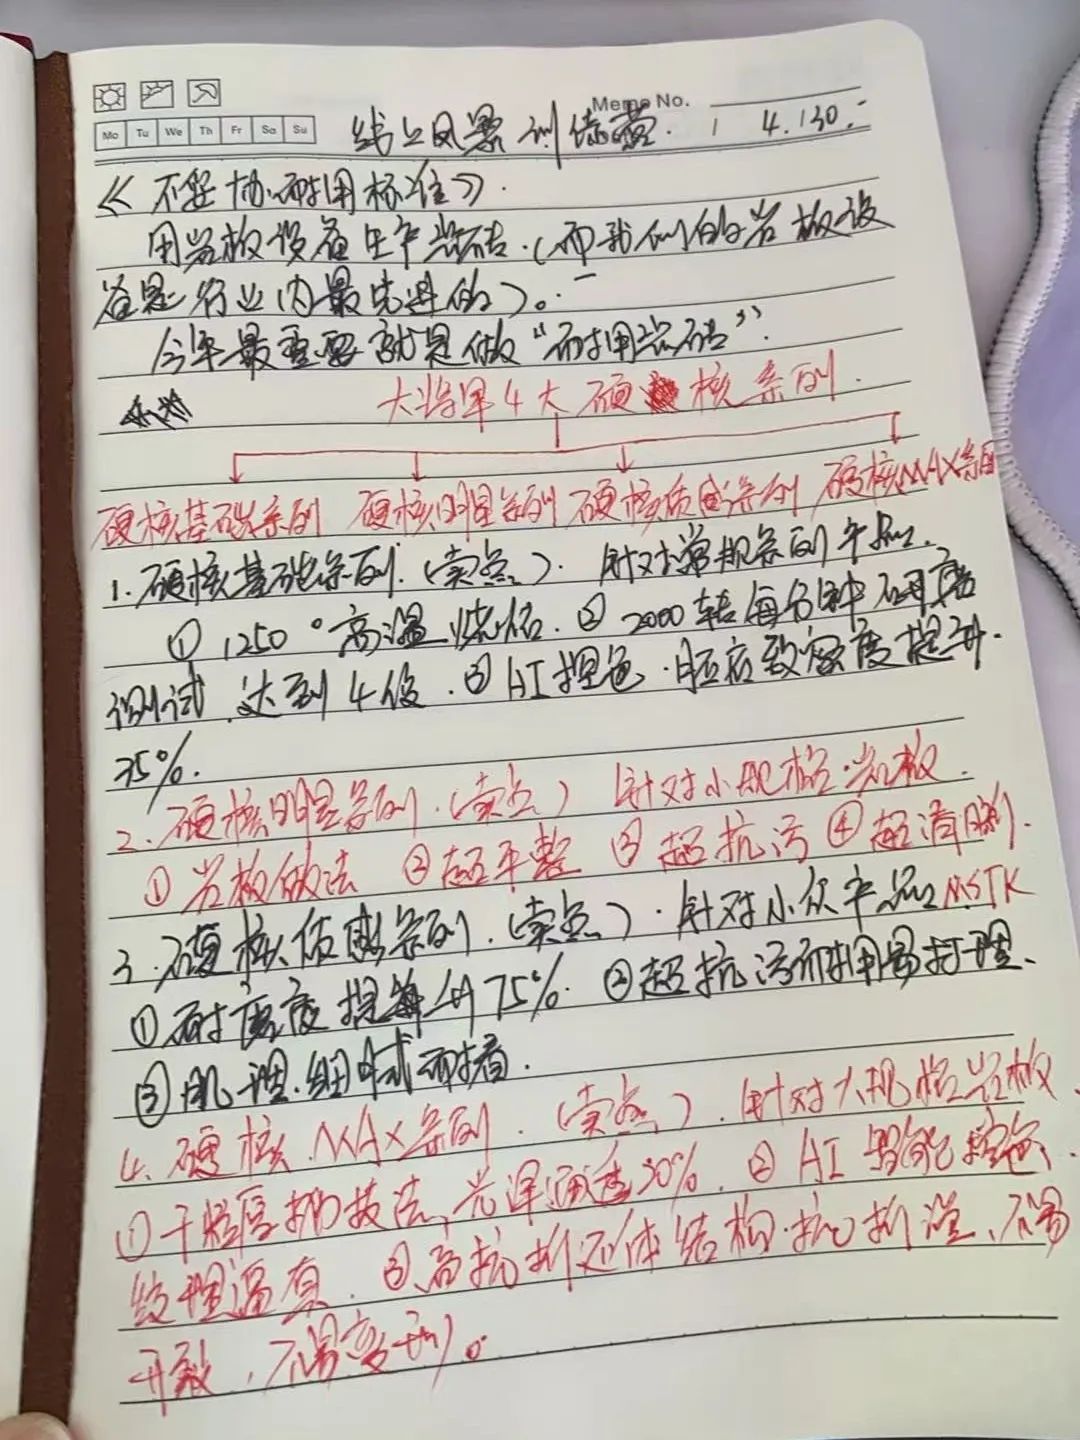 Memo No.
Mo Tu We Th Fr Sa Su
线上风暴训练营. 4.130.
《不妥协.耐用标准》.
用岩板设备生产瓷砖.(而我们的岩板设
备是行业内最先进的)。
今年最重要就是做“耐用瓷砖”.
大将军4大硬核系列.
硬核基础系列 硬核明星系列 硬核质感系列 硬核MAX系列
1.硬核基础系列.(卖点). 针对常规系列产品.
①1250°高温烧结.②2000转每分钟研磨
测试.达到4级.③AI控色.胚底致密度提升.
35%.
2.硬核明星系列.(卖点) 针对小规格.岩板.
①岩板做法 ②超平整 ③超抗污 ④超清晰.
3.硬核质感系列.(卖点).针对小众产品MSTK
①耐磨度提升75%.②超抗污耐用易打理.
③肌理.细腻耐看.
4.硬核.MAX系列.(卖点).针对大规格岩板.
①干粒厚抛技法,光泽通透30%.②AI智能控色.
纹理逼真.③高抗折坯体结构.抗折强、不易
开裂,不易变形。